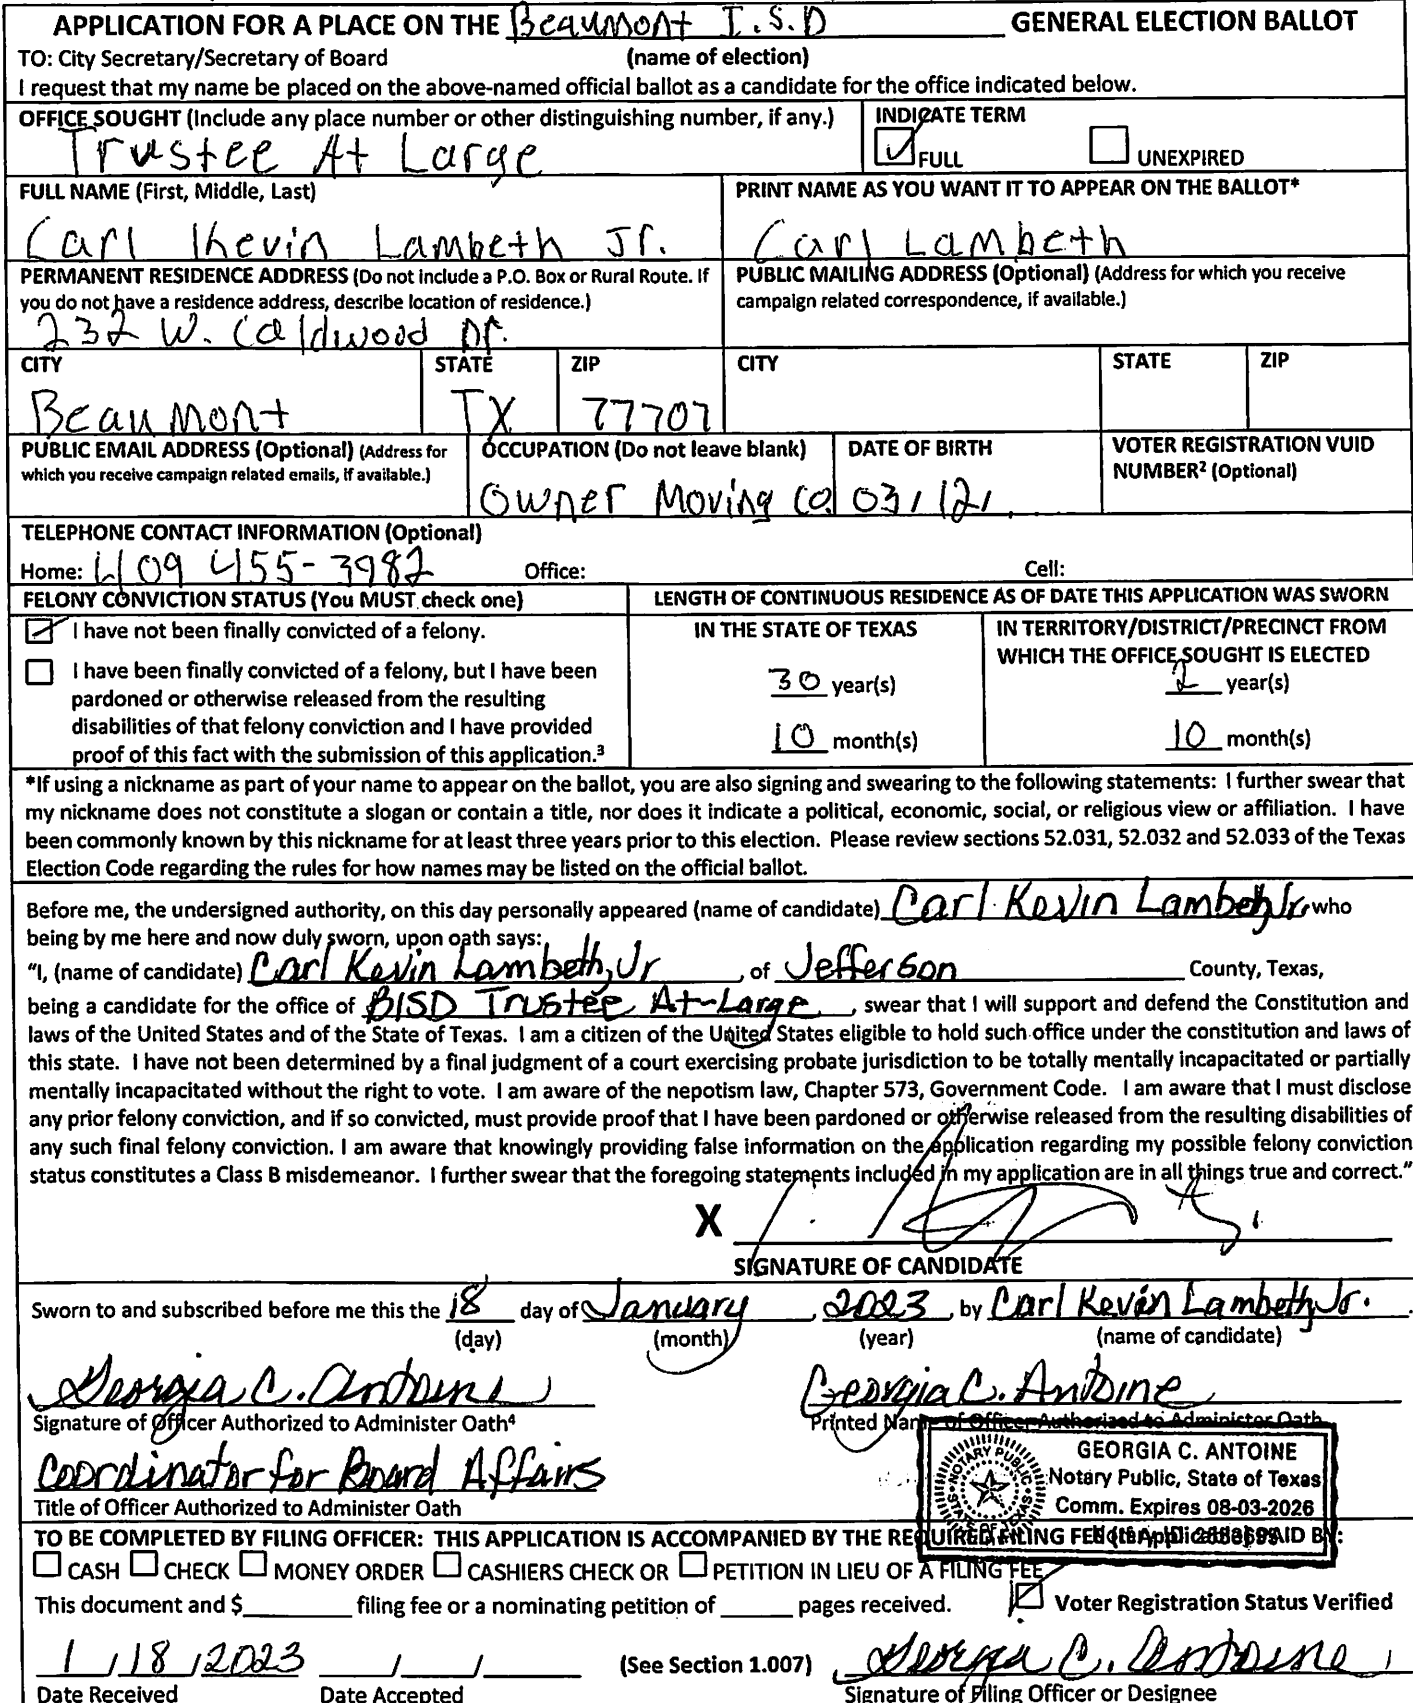 APPLICATION FOR A PLACE ON THE Beaumont I.S.D GENERAL ELECTION BALLOT
TO: City Secretary/Secretary of Board (name of election)
I request that my name be placed on the above-named official ballot as a candidate for the office indicated below.
OFFICE SOUGHT (Include any place number or other distinguishing number, if any.) INDICATE TERM
Trustee At Large FULL UNEXPIRED
FULL NAME (First, Middle, Last) PRINT NAME AS YOU WANT IT TO APPEAR ON THE BALLOT*
Carl Kevin Lambeth Jr. Carl Lambeth
PERMANENT RESIDENCE ADDRESS (Do not include a P.O. Box or Rural Route. If PUBLIC MAILING ADDRESS (Optional) (Address for which you receive
you do not have a residence address, describe location of residence.) campaign related correspondence, if available.)
232 W. Caldwood Dr.
CITY STATE ZIP CITY STATE ZIP
Beaumont TX 77707
PUBLIC EMAIL ADDRESS (Optional) (Address for OCCUPATION (Do not leave blank) DATE OF BIRTH VOTER REGISTRATION VUID
which you receive campaign related emails, if available.) NUMBER² (Optional)
Owner Moving Co. 03/12/
TELEPHONE CONTACT INFORMATION (Optional)
Home: 409 455-3982 Office: Cell:
FELONY CONVICTION STATUS (You MUST check one) LENGTH OF CONTINUOUS RESIDENCE AS OF DATE THIS APPLICATION WAS SWORN
I have not been finally convicted of a felony. IN THE STATE OF TEXAS IN TERRITORY/DISTRICT/PRECINCT FROM
WHICH THE OFFICE SOUGHT IS ELECTED
I have been finally convicted of a felony, but I have been 30 year(s) 2 year(s)
pardoned or otherwise released from the resulting
disabilities of that felony conviction and I have provided 10 month(s) 10 month(s)
proof of this fact with the submission of this application.³
*If using a nickname as part of your name to appear on the ballot, you are also signing and swearing to the following statements: I further swear that
my nickname does not constitute a slogan or contain a title, nor does it indicate a political, economic, social, or religious view or affiliation. I have
been commonly known by this nickname for at least three years prior to this election. Please review sections 52.031, 52.032 and 52.033 of the Texas
Election Code regarding the rules for how names may be listed on the official ballot.
Before me, the undersigned authority, on this day personally appeared (name of candidate) Carl Kevin Lambeth, Jr. who
being by me here and now duly sworn, upon oath says:
"I, (name of candidate) Carl Kevin Lambeth, Jr , of Jefferson County, Texas,
being a candidate for the office of BISD Trustee At-Large , swear that I will support and defend the Constitution and
laws of the United States and of the State of Texas. I am a citizen of the United States eligible to hold such office under the constitution and laws of
this state. I have not been determined by a final judgment of a court exercising probate jurisdiction to be totally mentally incapacitated or partially
mentally incapacitated without the right to vote. I am aware of the nepotism law, Chapter 573, Government Code. I am aware that I must disclose
any prior felony conviction, and if so convicted, must provide proof that I have been pardoned or otherwise released from the resulting disabilities of
any such final felony conviction. I am aware that knowingly providing false information on the application regarding my possible felony conviction
status constitutes a Class B misdemeanor. I further swear that the foregoing statements included in my application are in all things true and correct."
X
SIGNATURE OF CANDIDATE
Sworn to and subscribed before me this the 18 day of January , 2023 , by Carl Kevin Lambeth, Jr.
(day) (month) (year) (name of candidate)
Georgia C. Antoine Georgia C. Antoine
Signature of Officer Authorized to Administer Oath⁴ Printed Name of Officer Authorized to Administer Oath
Coordinator for Board Affairs
Title of Officer Authorized to Administer Oath
NOTARY PUBLIC STATE OF TEXAS
GEORGIA C. ANTOINE
Notary Public, State of Texas
Comm. Expires 08-03-2026
TO BE COMPLETED BY FILING OFFICER: THIS APPLICATION IS ACCOMPANIED BY THE REQUIRED FILING FEE (If Applicable) PAID BY:
CASH CHECK MONEY ORDER CASHIERS CHECK OR PETITION IN LIEU OF A FILING FEE
This document and $ filing fee or a nominating petition of pages received. Voter Registration Status Verified
1/18/2023 / / (See Section 1.007) Georgia C. Antoine
Date Received Date Accepted Signature of Filing Officer or Designee